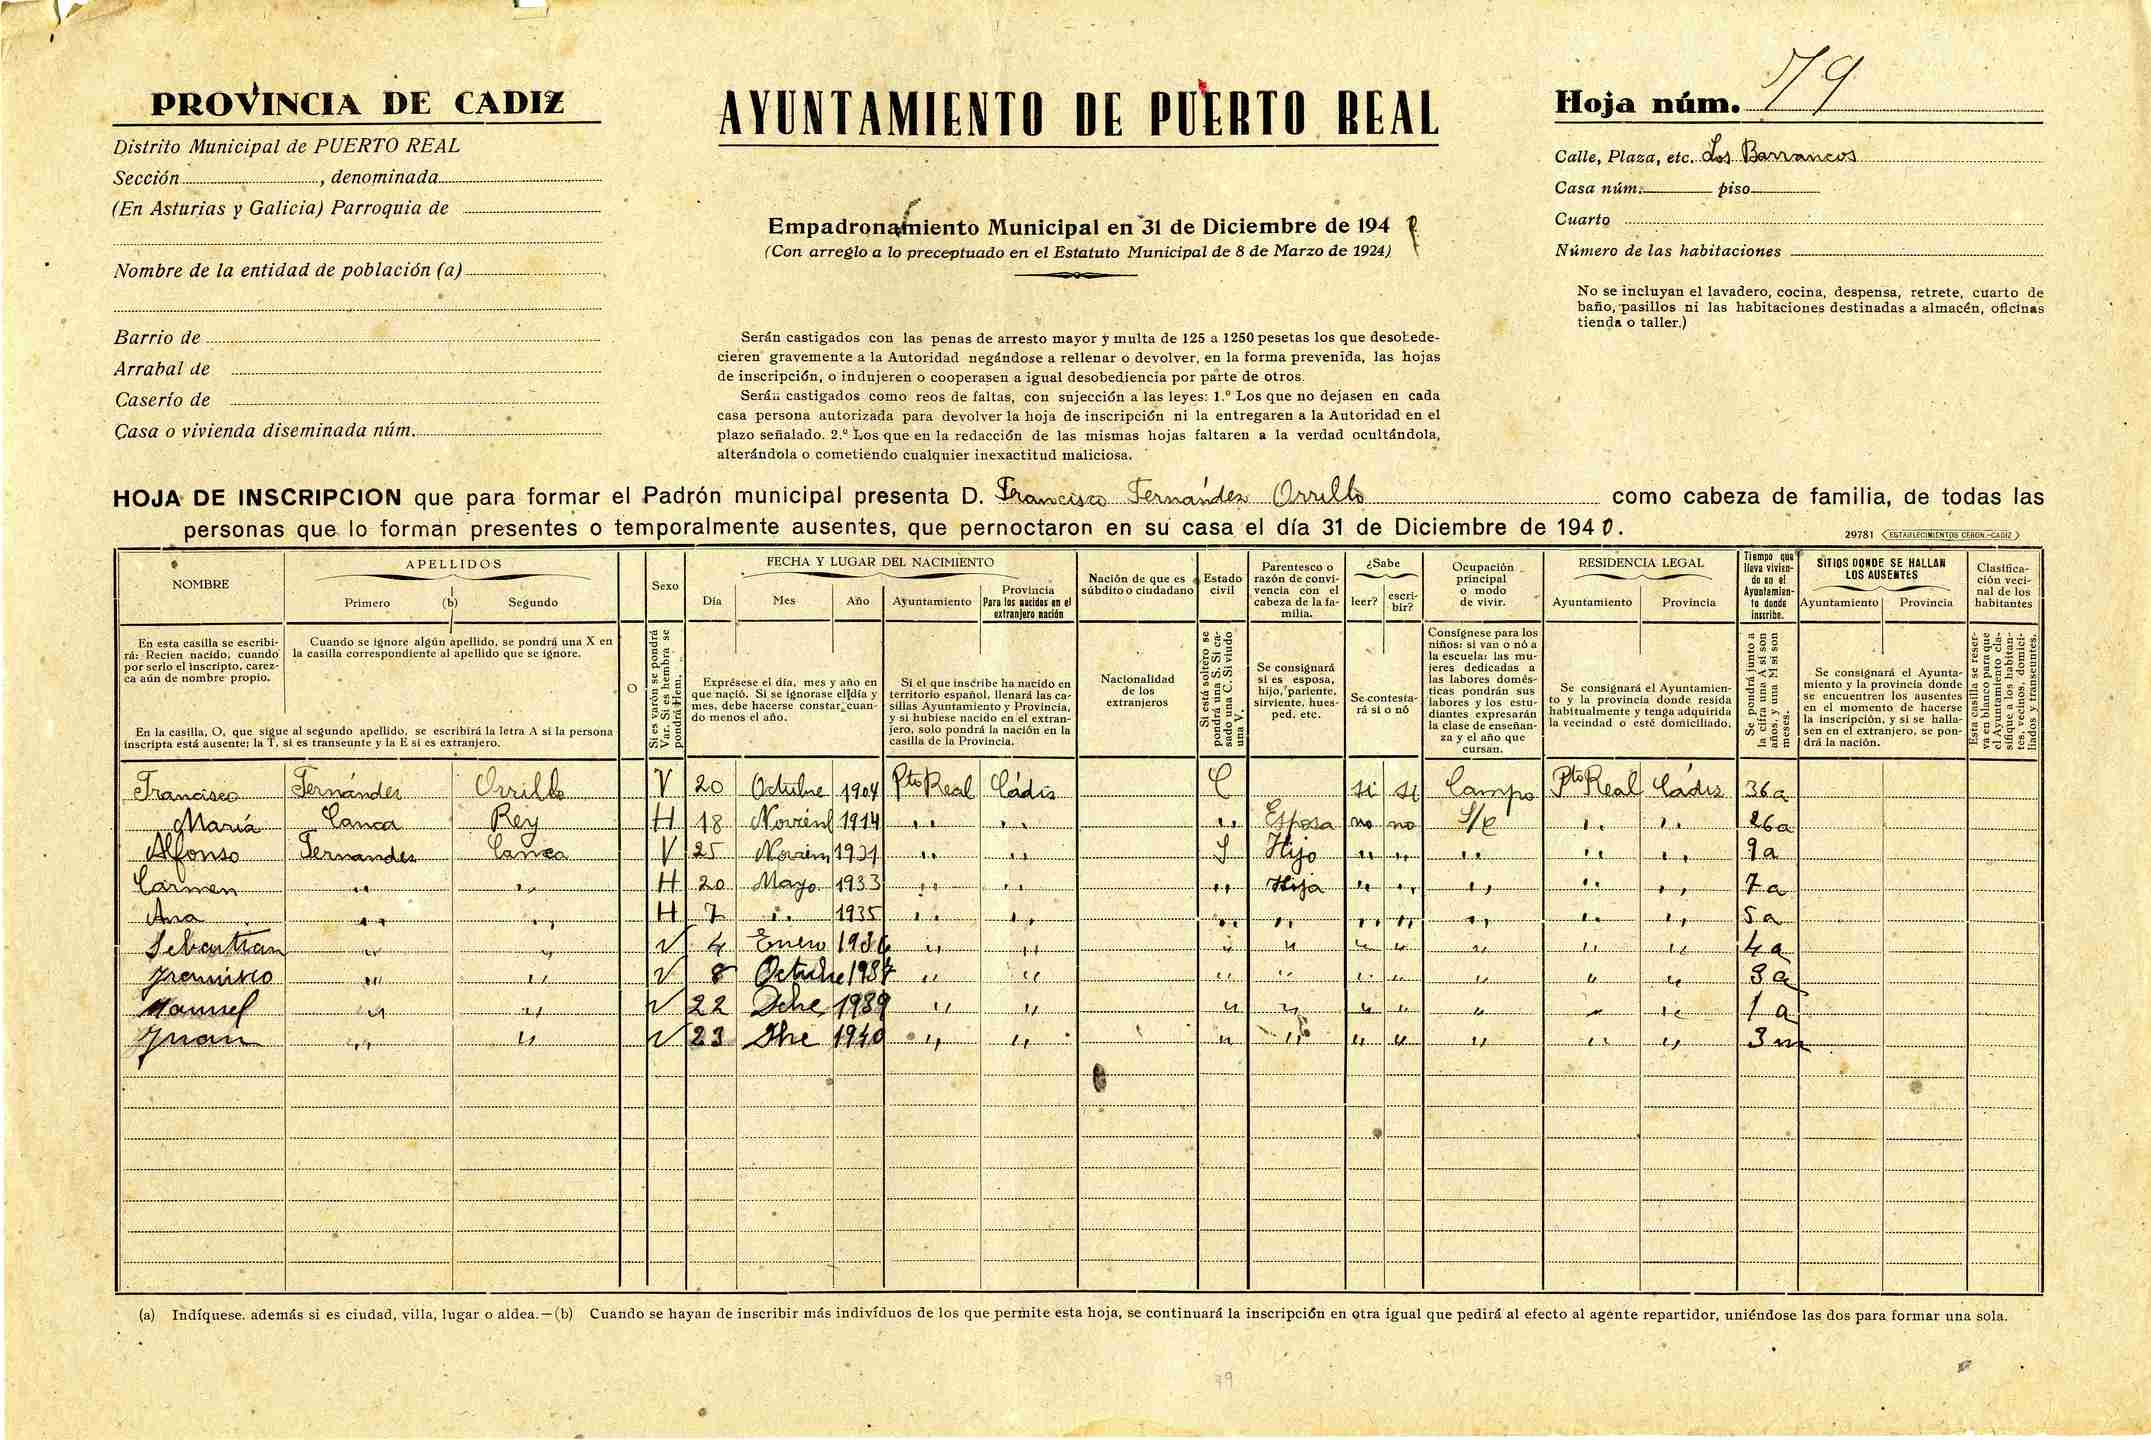 PROVINCIA DE CADIZ
Distrito Municipal de PUERTO REAL
Sección , denominada
(En Asturias y Galicia) Parroquia de
Nombre de la entidad de población (a)
Barrio de
Arrabal de
Caserío de
Casa o vivienda diseminada núm.
AYUNTAMIENTO DE PUERTO REAL
Empadronamiento Municipal en 31 de Diciembre de 194
(Con arreglo a lo preceptuado en el Estatuto Municipal de 8 de Marzo de 1924)
Serán castigados con las penas de arresto mayor y multa de 125 a 1250 pesetas los que desobede-
cieren gravemente a la Autoridad negándose a rellenar o devolver, en la forma prevenida, las hojas
de inscripción, o indujeren o cooperasen a igual desobediencia por parte de otros.
Serán castigados como reos de faltas, con sujección a las leyes: 1.º Los que no dejasen en cada
casa persona autorizada para devolver la hoja de inscripción ni la entregaren a la Autoridad en el
plazo señalado. 2.º Los que en la redacción de las mismas hojas faltaren a la verdad ocultándola,
alterándola o cometiendo cualquier inexactitud maliciosa.
Hoja núm. 79
Calle, Plaza, etc. Los Barrancos
Casa núm. piso
Cuarto
Número de las habitaciones
No se incluyan el lavadero, cocina, despensa, retrete, cuarto de
baño, pasillos ni las habitaciones destinadas a almacén, oficinas
tienda o taller.)
HOJA DE INSCRIPCION que para formar el Padrón municipal presenta D. Francisco Fernández Orrillo como cabeza de familia, de todas las
personas que lo forman presentes o temporalmente ausentes, que pernoctaron en su casa el día 31 de Diciembre de 1940.
29781 ESTABLECIMIENTOS CERON.-CADIZ
NOMBRE
APELLIDOS
Primero (b) Segundo
O
Sexo
FECHA Y LUGAR DEL NACIMIENTO
Día Mes Año Ayuntamiento
Provincia
Para los nacidos en el
extranjero nación
Nación de que es
súbdito o ciudadano
Estado
civil
Parentesco o
razón de convi-
vencia con el
cabeza de la fa-
milia.
¿Sabe
leer? escri-
bir?
Ocupación
principal
o modo
de vivir.
RESIDENCIA LEGAL
Ayuntamiento Provincia
Tiempo que
lleva vivien-
do en el
Ayuntamien-
to donde
inscribe.
SITIOS DONDE SE HALLAN
LOS AUSENTES
Ayuntamiento Provincia
Clasifica-
ción veci-
nal de los
habitantes
En esta casilla se escribi-
rá: Recien nacido, cuando
por serlo el inscripto, carez-
ca aún de nombre propio.
Cuando se ignore algún apellido, se pondrá una X en
la casilla correspondiente al apellido que se ignore.
En la casilla, O, que sigue al segundo apellido, se escribirá la letra A si la persona
inscripta está ausente; la T, si es transeunte y la E si es extranjero.
Si es varón se pondrá
Var. Si es hembra se
pondrá Hem.
Exprésese el día, mes y año en
que nació. Si se ignorase el día y
mes, debe hacerse constar, cuan-
do menos el año.
Si el que inscribe ha nacido en
territorio español, llenará las ca-
sillas Ayuntamiento y Provincia,
y si hubiese nacido en el extran-
jero, solo pondrá la nación en la
casilla de la Provincia.
Nacionalidad
de los
extranjeros
Si está soltero se
pondrá una S. Si ca-
sado una C. Si viudo
una V.
Se consignará
si es esposa,
hijo, pariente,
sirviente, hues-
ped, etc.
Se contesta-
rá si o nó
Consígnese para los
niños: si van o nó a
la escuela: las mu-
jeres dedicadas a
las labores domés-
ticas pondrán sus
labores y los estu-
diantes expresarán
la clase de enseñan-
za y el año que
cursan.
Se consignará el Ayuntamien-
to y la provincia donde resida
habitualmente y tenga adquirida
la vecindad o esté domiciliado.
Se pondrá junto a
la cifra una A si son
años, y una M si son
meses.
Se consignará el Ayunta-
miento y la provincia donde
se encuentren los ausentes
en el momento de hacerse
la inscripción, y si se halla-
sen en el extranjero, se pon-
drá la nación.
Esta casilla se reser-
va en blanco para que
el Ayuntamiento cla-
sifique a los habitan-
tes, vecinos, domici-
liados y transeuntes.
Francisco Fernández Orrillo V 20 Octubre 1904 Pto Real Cádiz C si si Campo Pto Real Cádiz 36a
María Canca Rey H 18 Noviem 1914 " " " Esposa no no S/c " " 26a
Alfonso Fernandez Canca V 25 Noviem 1931 " " S Hijo " " " " " 9a
Carmen " " H 20 Mayo 1933 " " " Hija " " " " " 7a
Ana " " H 7 " 1935 " " " " " " " " " 5a
Sebastian " " V 4 Enero 1936 " " " " " " " " " 4a
Francisco " " V 8 Octubre 1937 " " " " " " " " " 3a
Manuel " " V 22 Dcbe 1939 " " " " " " " " " 1a
Juan " " V 23 1940 " " " " " " " " " 3m
(a) Indíquese. además si es ciudad, villa, lugar o aldea.—(b) Cuando se hayan de inscribir más indivíduos de los que permite esta hoja, se continuará la inscripción en otra igual que pedirá al efecto al agente repartidor, uniéndose las dos para formar una sola.
79